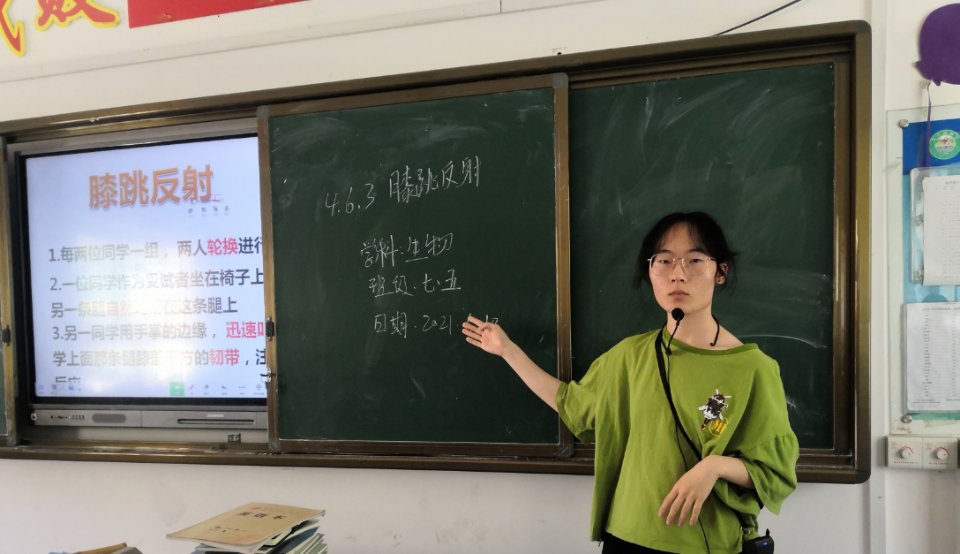 膝跳反射
1.每两位同学一组，两人轮换进行
2.一位同学作为受试者坐在椅子上
另一条腿自然 在这条腿上
3.另一同学用手掌的边缘，迅速叩
学上面那条腿膝 下方的韧带，注
4.6.3 膝跳反射
学科:生物
班级:七.五
日期.2021.